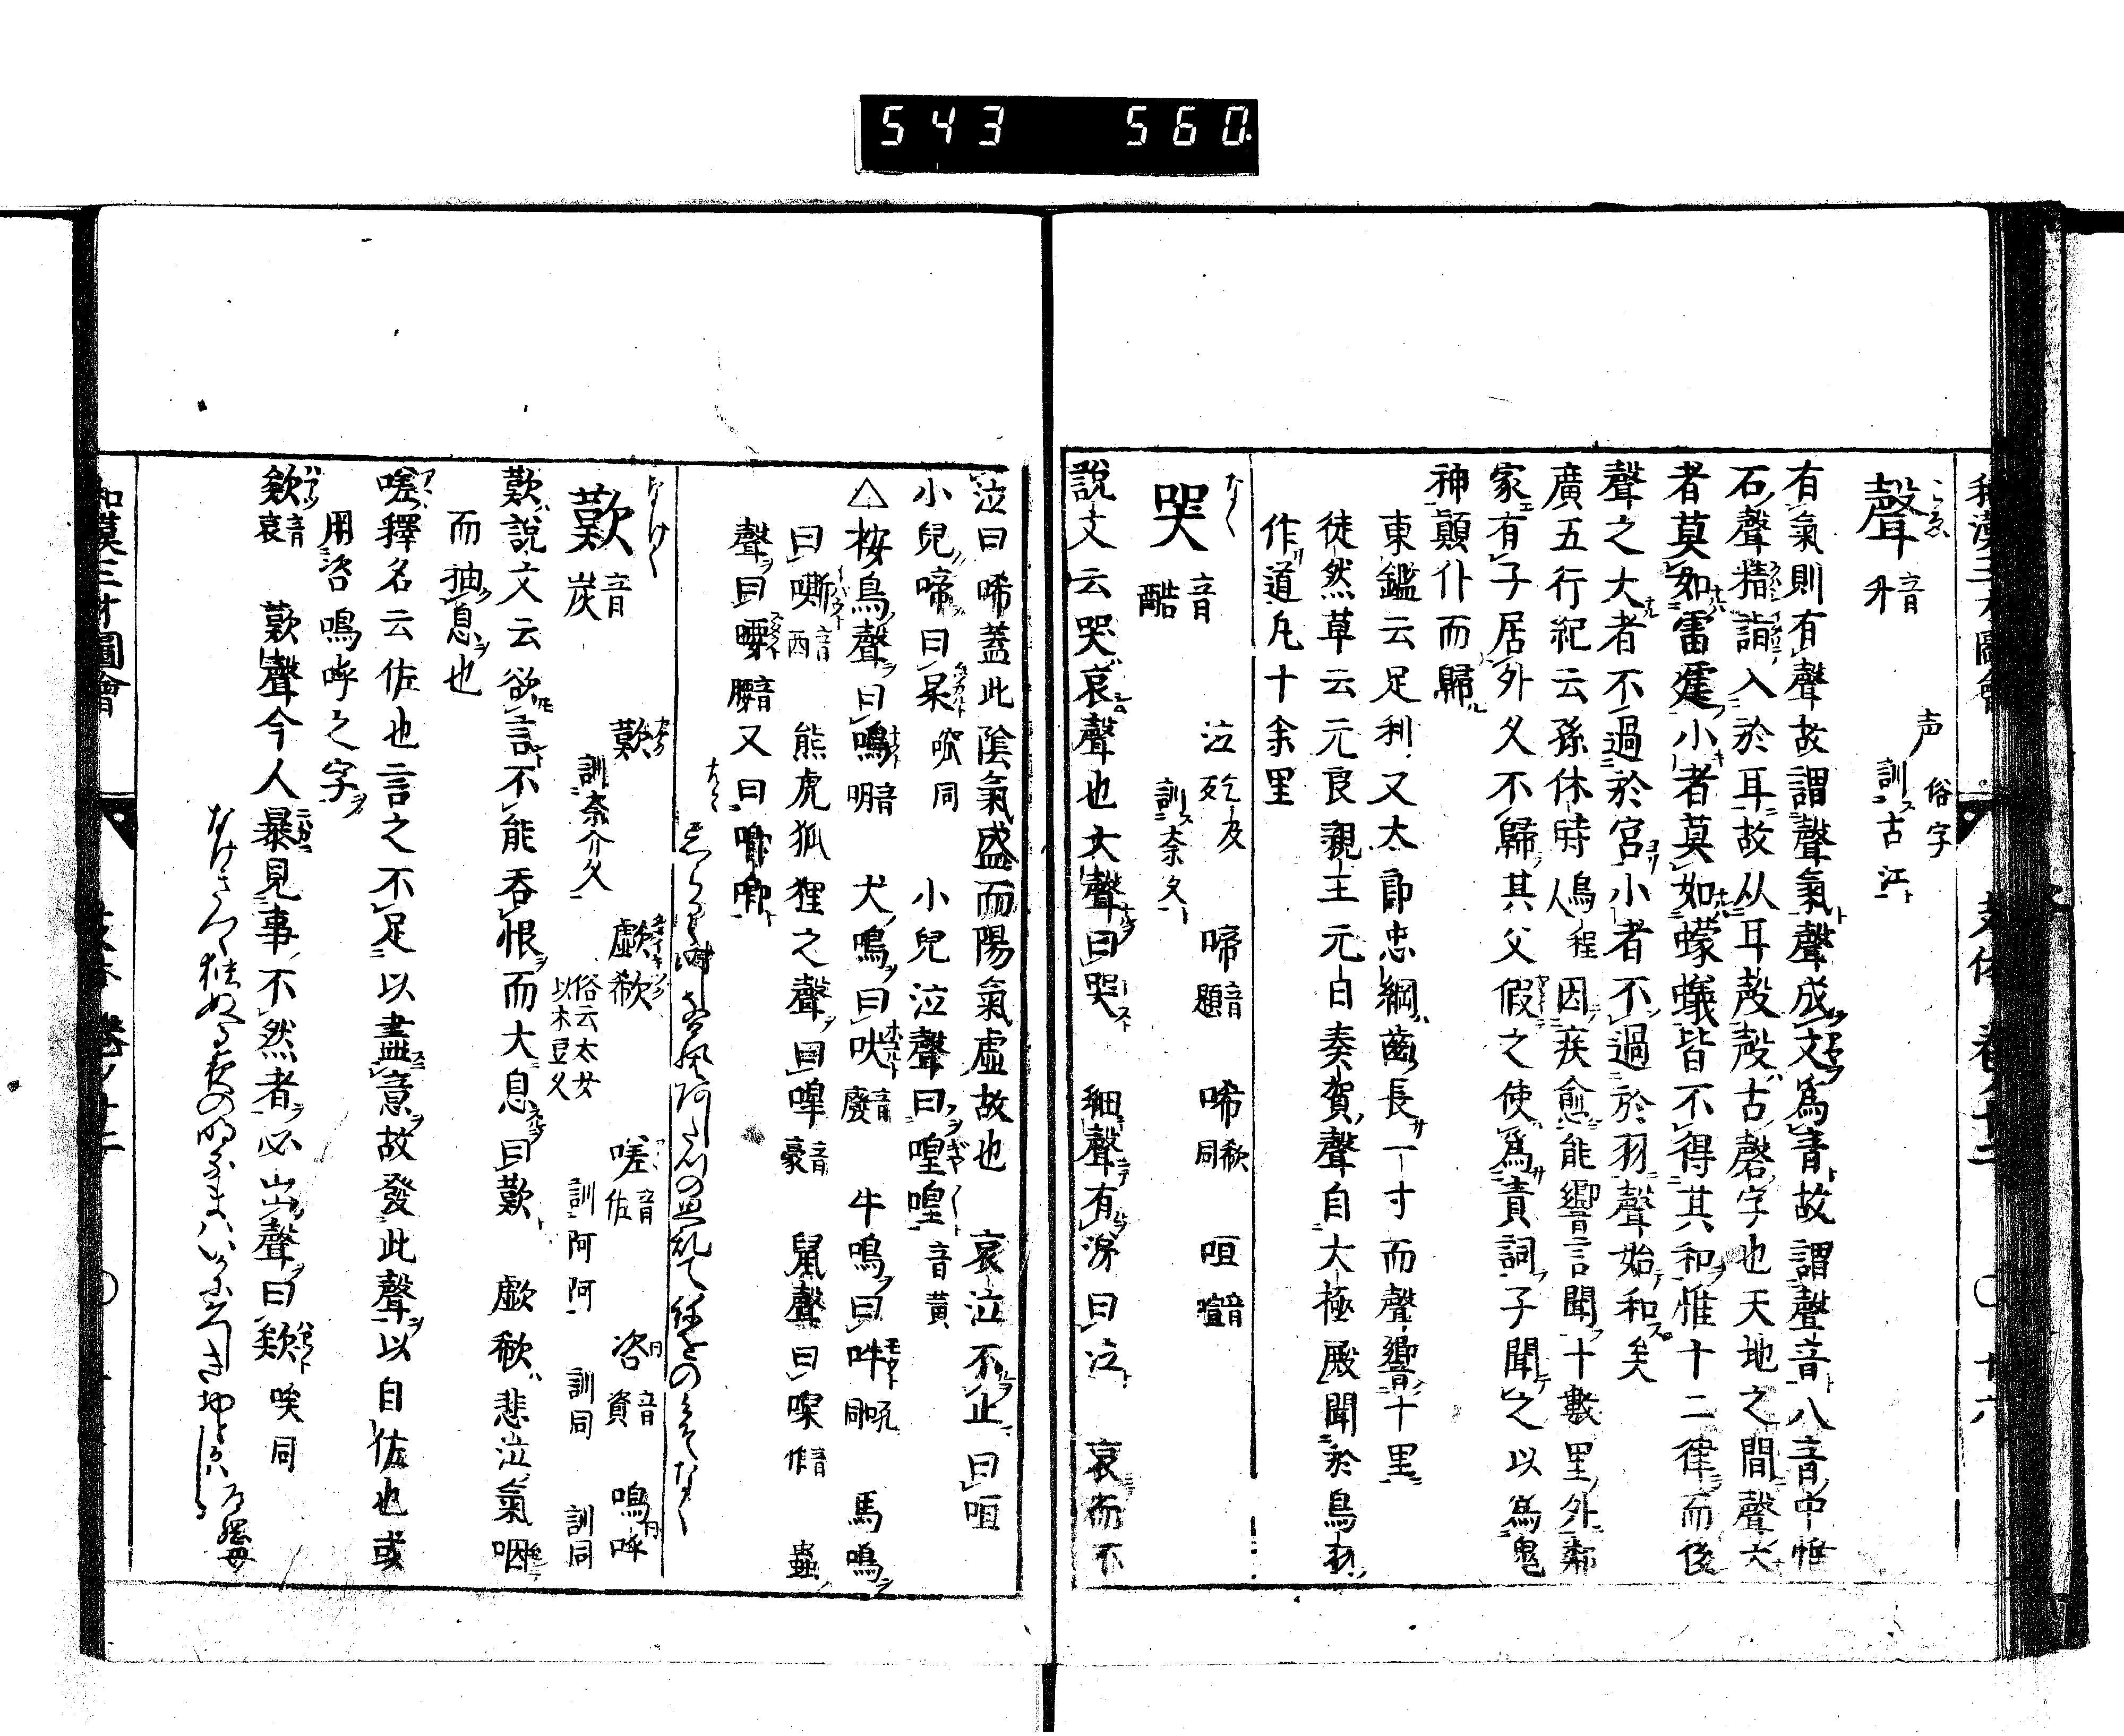 543 560
聲 音升 声 俗字 訓古江
有氣則有聲故謂聲氣聲成文爲音故謂聲音八音中惟
石聲精詣入於耳故从耳殸殸古磬字也天地之間聲大
者莫如雷霆小者莫如蠓蟻皆不得其和惟十二律而後
聲之大者不過於宮小者不過於羽聲始和矣
廣五行紀云孫休時烏程人因疾愈能響言聞十數里外鄰
家有子居外久不歸其父假之使爲責詞子聞之以爲鬼
神顛仆而歸
東鑑云足利又太郎忠綱齒長一寸而聲響十里
徒然草云元良親王元日奏賀聲自大極殿聞於鳥羽
作道凡十余里
哭 音酷 訓奈久 泣 啼 音題 唏 欷同 咺 音喧
說文云哭哀聲也大聲曰哭 細聲有涕曰泣 哀而不
泣曰唏蓋此陰氣盛而陽氣虛故也 哀泣不止曰咺
小兒啼曰呆 同 小兒泣聲曰喤喤 音黃
△按鳥聲曰鳴 音明 犬鳴曰吠 音廢 牛鳴曰吽 吼同 馬鳴
曰嘶 音西 熊虎狐狸之聲曰嘷 音豪 鼠聲曰 音作 蟲
聲曰喓 音腰 又曰喞喞
歎 音炭 歎 訓奈介久 歔欷 俗云太女以木豆久 嗟 音佐 訓阿阿 咨 音資 訓同 嗚呼 訓同
歎說文云欲言不能吞恨而大息曰歎 歔欷悲泣氣咽
而抽息也
嗟釋名云佐也言之不足以盡意故發此聲以自佐也或
用咨嗚呼之字
欸 音哀 歎聲今人暴見事不然者必出聲曰欸 唉同